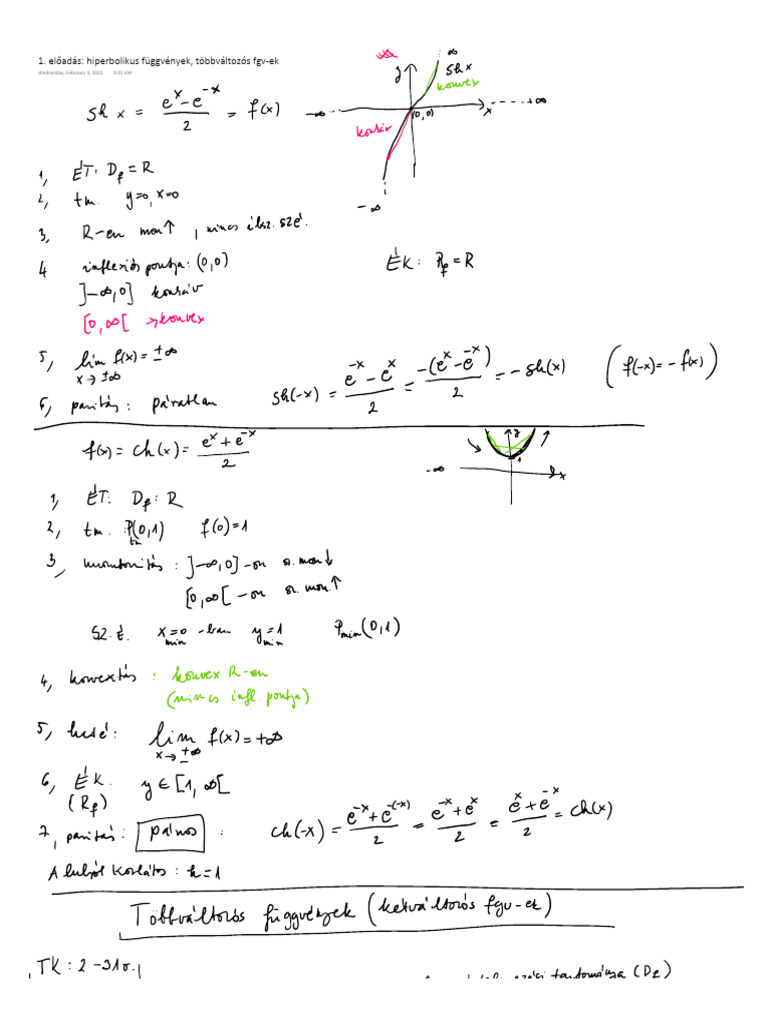 1. előadás: hiperbolikus függvények, többváltozós fgv-ek
Wednesday, February 9, 2022 9:35 AM
sh x = (e^x − e^−x)/2 = f(x)
∞
y
sh x
konvex
−∞
(0,0)
x
+∞
konkáv
−∞
1, ÉT: D_f = R
2, tm. y=0, x=0
3, R-en mon↑, nincs
4 inflexiós pontja: (0,0)
ÉK: R_f = R
]−∞,0] konkáv
[0,∞[ → konvex
5, lim f(x) = ±∞
x→±∞
6, paritás: páratlan
sh(−x) = (e^−x − e^x)/2 = −(e^x − e^−x)/2 = −sh(x) (f(−x) = −f(x))
f(x) = ch(x) = (e^x + e^−x)/2
y
1
−∞
x
1, ÉT: D_f: R
2, tm. P_tm(0,1) f(0)=1
3, monotonitás: ]−∞,0]-on sz. mon↓
[0,∞[-on sz. mon.↑
SZ.É. x_min=0-ban y_min=1 P_min(0,1)
4, konvexitás: konvex R-en
(nincs infl. pontja)
5, lim f(x) = +∞
x→±∞
6, ÉK. y ∈ [1,∞[
(R_f)
7, paritás: páros :
ch(−x) = (e^−x + e^−(−x))/2 = (e^−x + e^x)/2 = (e^x + e^−x)/2 = ch(x)
Alulról korlátos: k=1
Többváltozós függvények (kétváltozós fgv-ek)
TK: 2-31o.
tartománya (D_f)